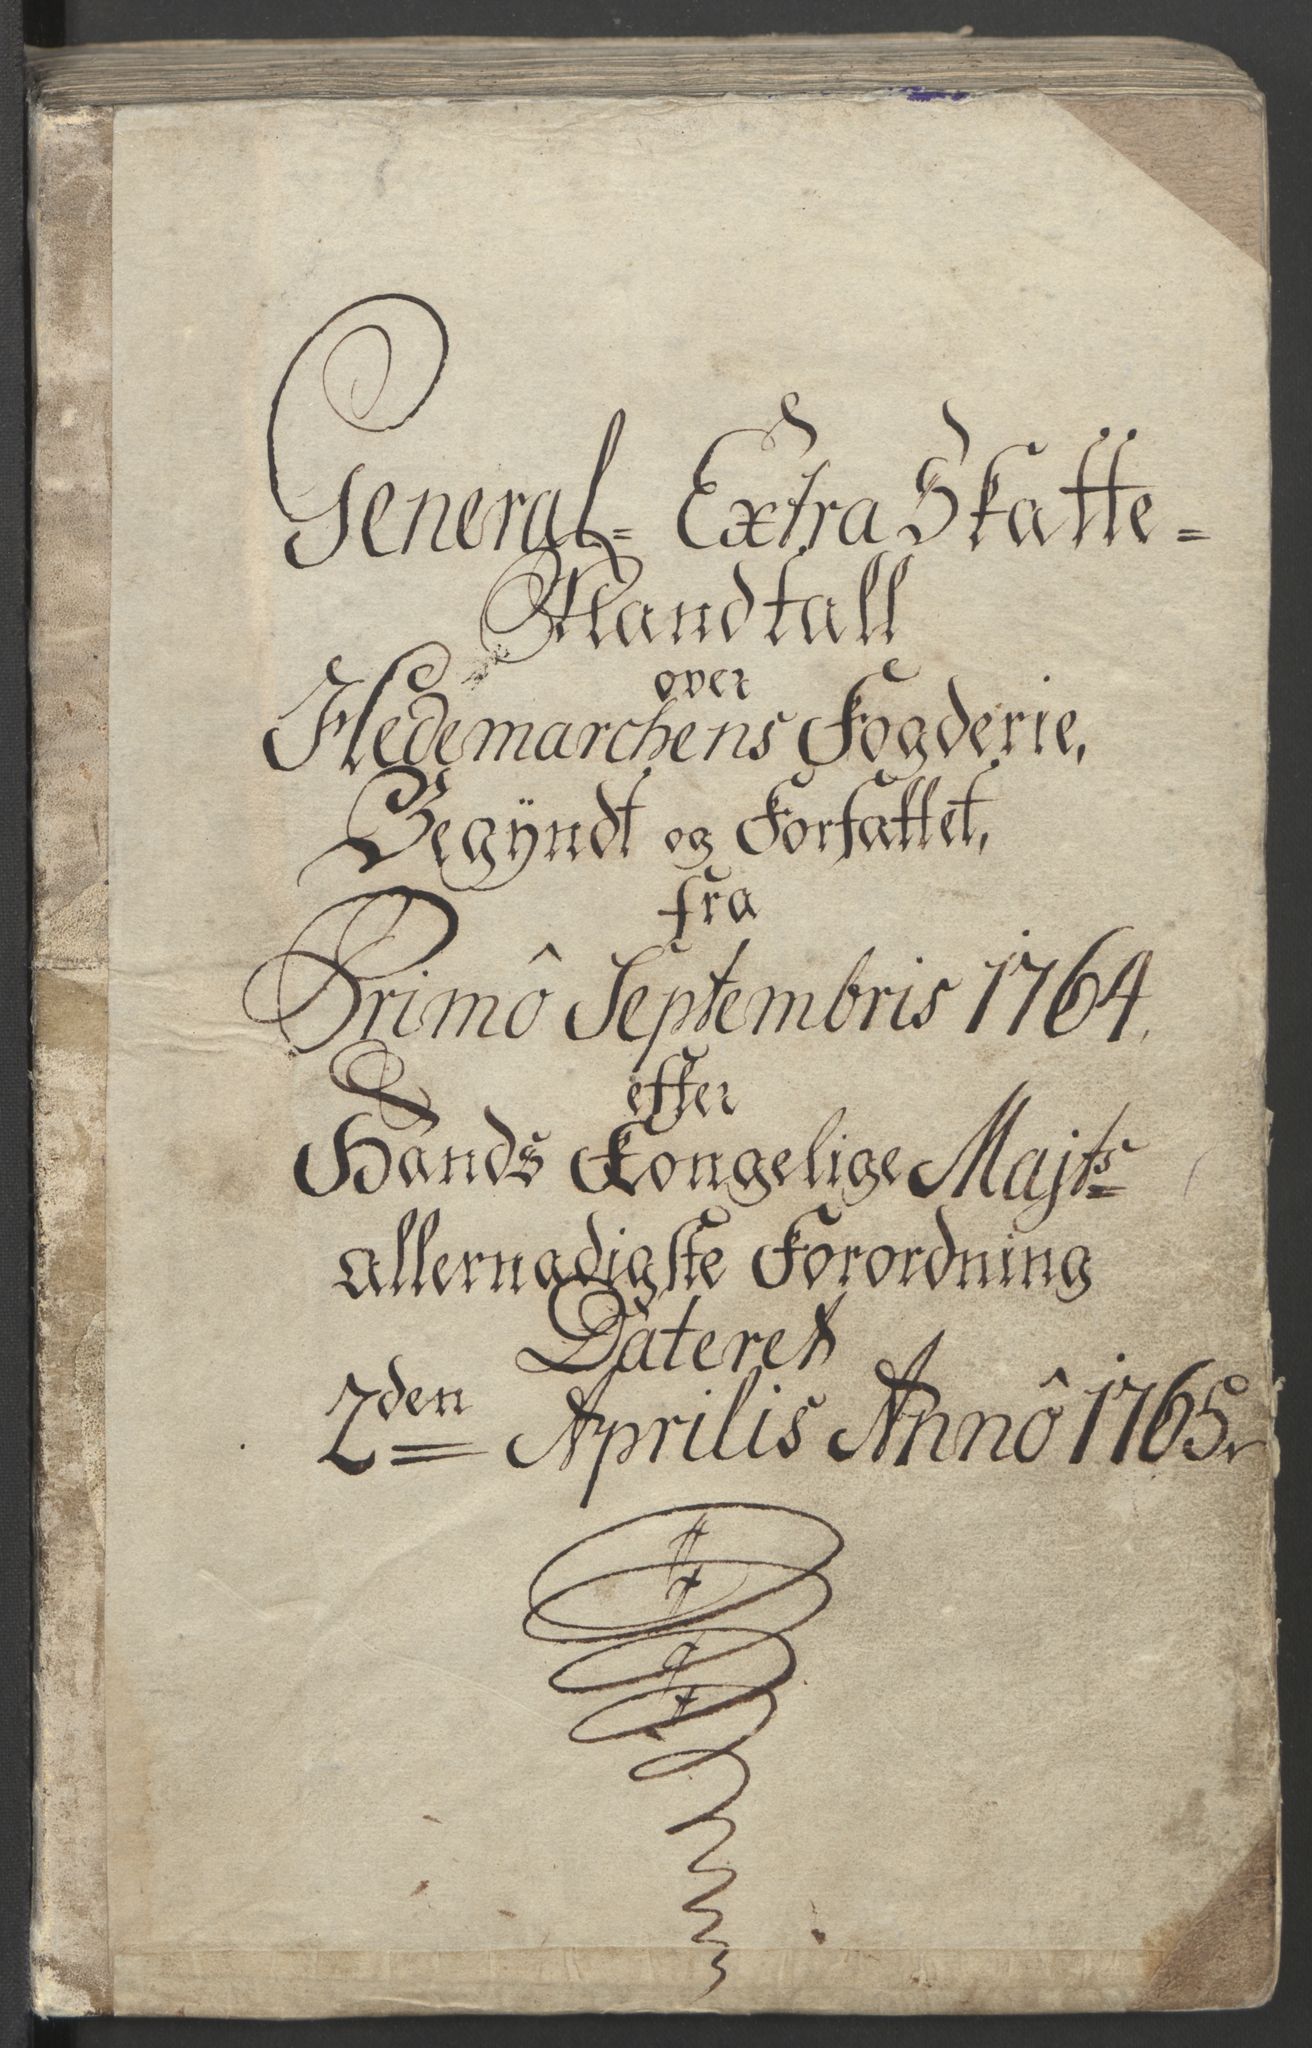 General= Extra Skatte=
Mandtall
over
Hedemarchens Fogderie,
Begÿndt og Forfattet,
fra
Primô Septembris 1764.
efter
Hands Kongelige Majts
allernadigste Forordning
Dateret
2den Aprilis Annô 1765.